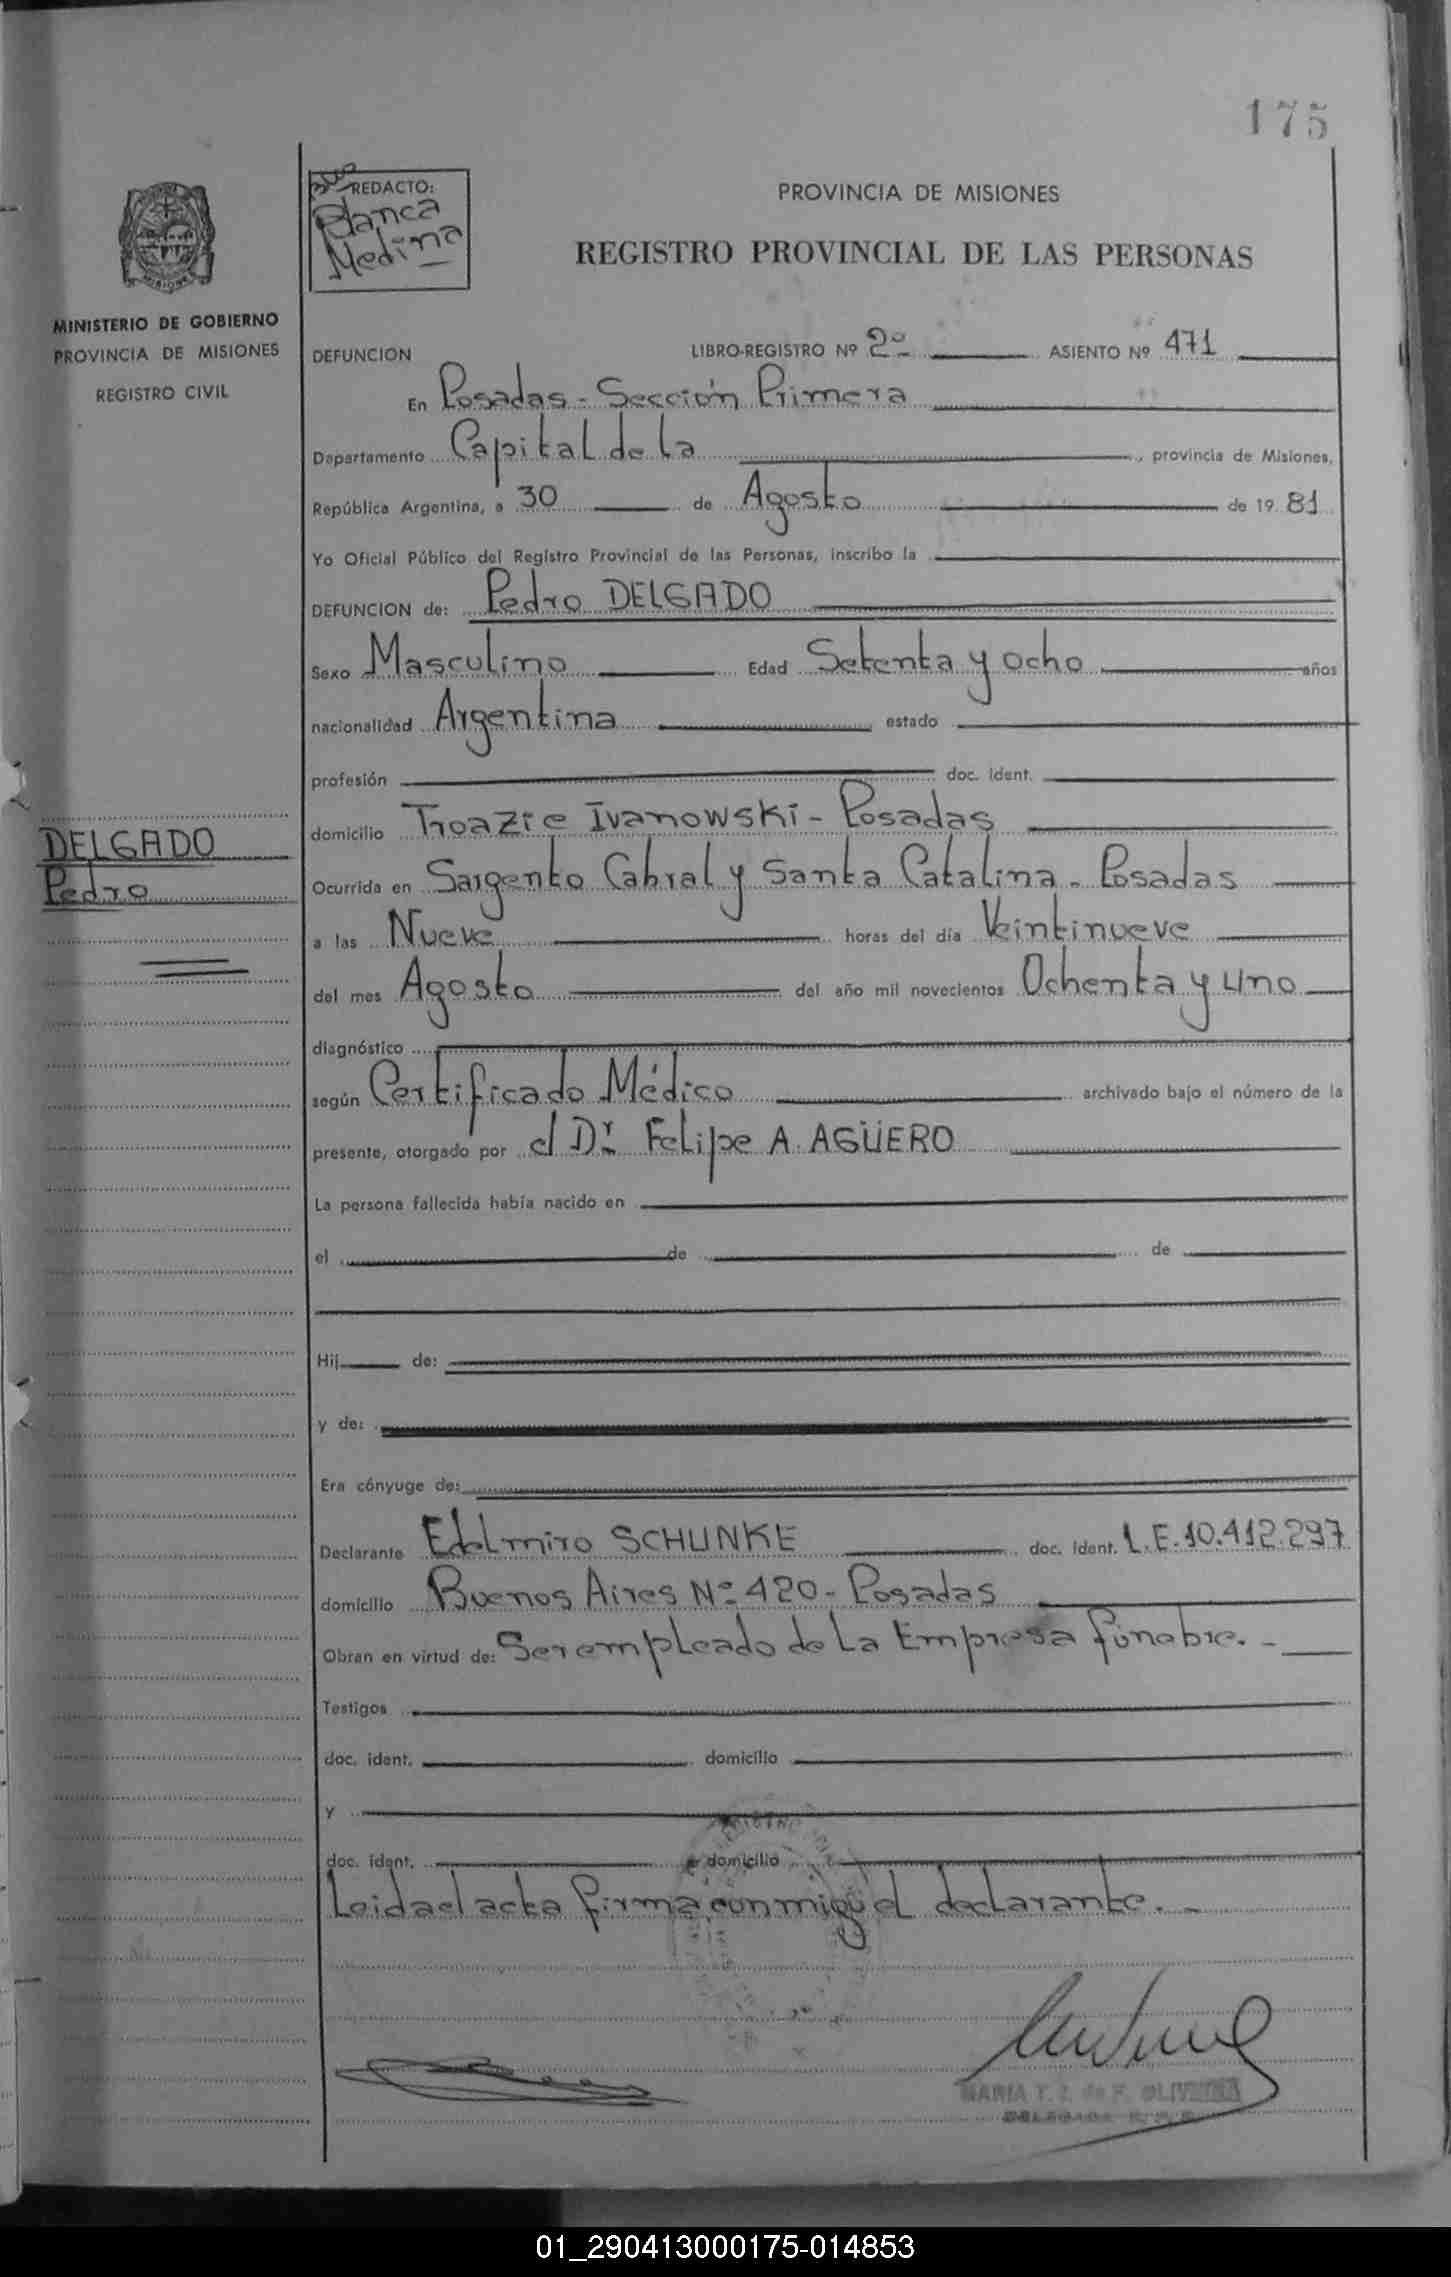 175
REDACTO:
Blanca
Medina
PROVINCIA DE MISIONES
REGISTRO PROVINCIAL DE LAS PERSONAS
MINISTERIO DE GOBIERNO
PROVINCIA DE MISIONES
REGISTRO CIVIL
DEFUNCION LIBRO-REGISTRO Nº 2º ASIENTO Nº 471
En Posadas - Sección Primera
Departamento Capital de la , provincia de Misiones,
República Argentina, a 30 de Agosto de 19 81
Yo Oficial Público del Registro Provincial de las Personas, inscribo la
DEFUNCION de: Pedro DELGADO
Sexo Masculino Edad Setenta y ocho años
nacionalidad Argentina estado
profesión doc. ident.
domicilio Troazie Ivanowski - Posadas
DELGADO
Pedro
Ocurrida en Sargento Cabral y Santa Catalina - Posadas
a las Nueve horas del día Veintinueve
del mes Agosto del año mil novecientos Ochenta y uno
diagnóstico
según Certificado Médico archivado bajo el número de la
presente, otorgado por el Dr. Felipe A. AGÜERO
La persona fallecida había nacido en
el de de
Hij de:
y de:
Era cónyuge de:
Declarante Edelmiro SCHUNKE doc. ident. L.E. 10.412.297
domicilio Buenos Aires Nº 420 - Posadas
Obran en virtud de: Ser empleado de la Empresa fúnebre. -
Testigos
doc. ident. domicilio
y
doc. ident. domicilio
Leida el acta firma conmigo el declarante. -
MARIA T. Z. de F. OLIVEIRA
DELEGADA R. P. P.
01_290413000175-014853